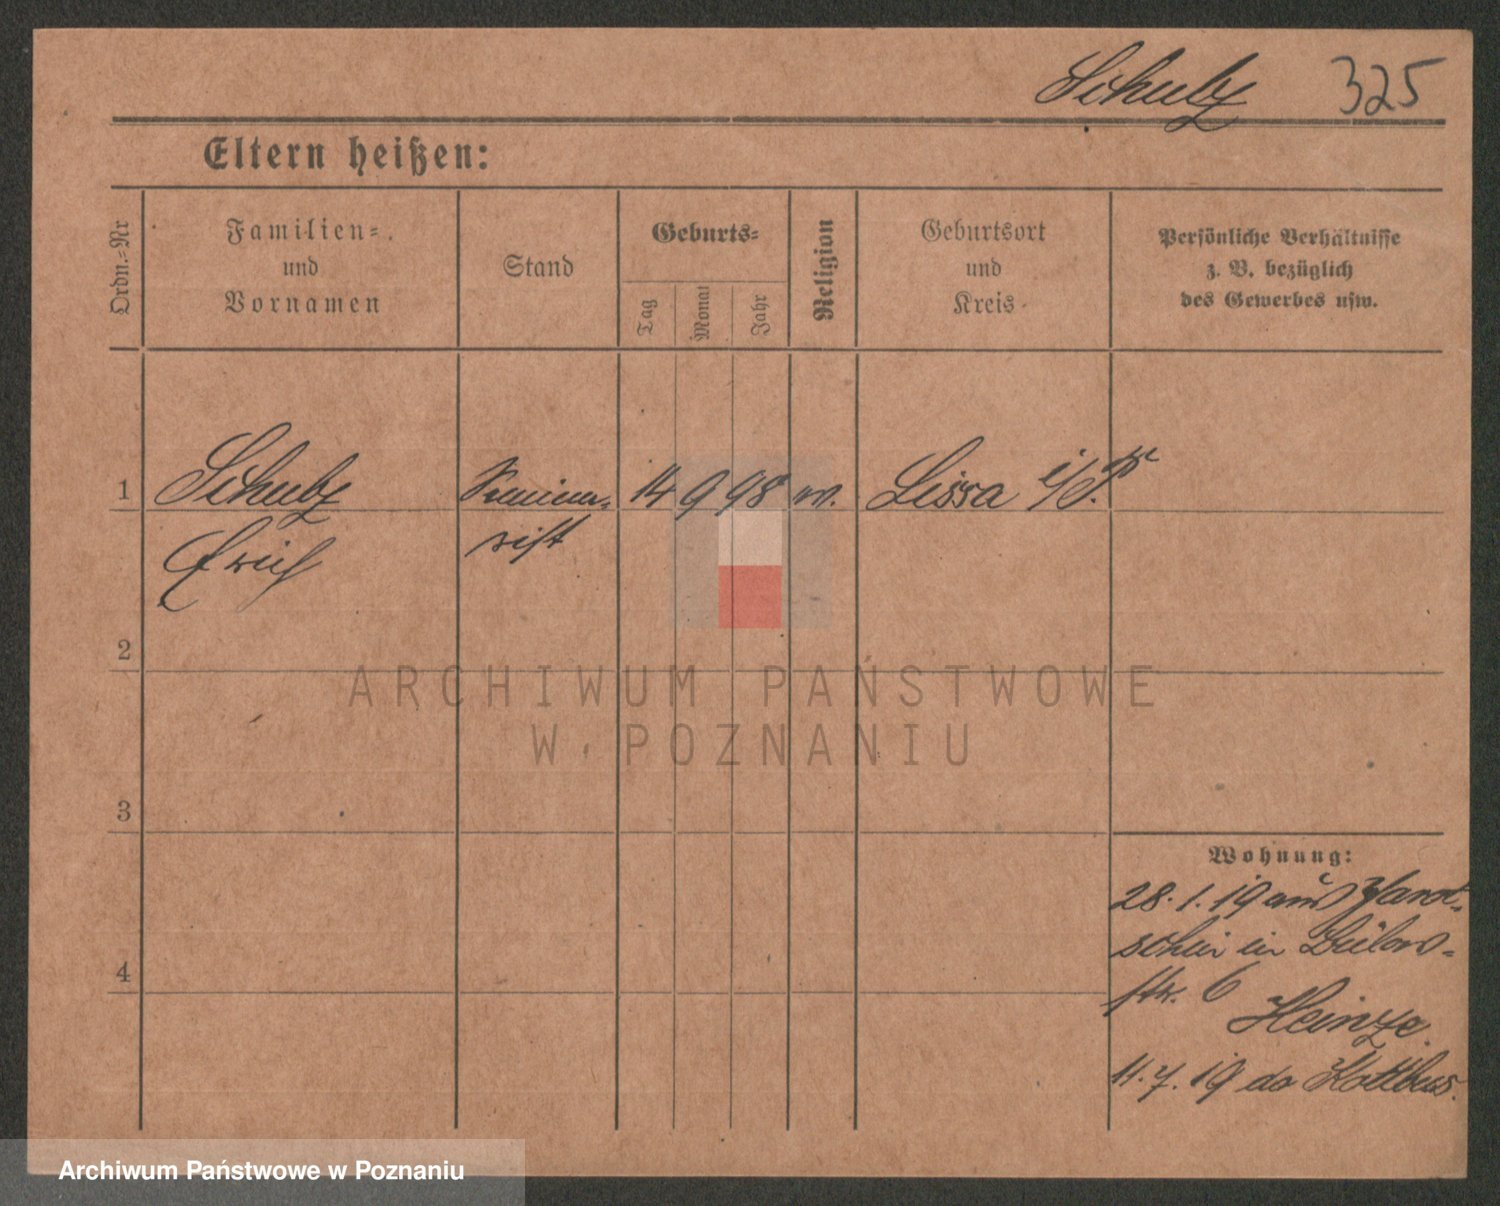 Schulz 325
Eltern heißen:
Ordn.-Nr
Familien-
und
Vornamen
Stand
Geburts-
Tag
Monat
Jahr
Religion
Geburtsort
und
Kreis
Persönliche Verhältnisse
z. B. bezüglich
des Gewerbes usw.
1 Schulz 14 9 98 Lissa i/P.
Erich
2
ARCHIWUM PAŃSTWOWE
W POZNANIU
3
Wohnung:
28.1.19 aus
in Bülow-
4
str. 6
Heinze
7.19 Kottbus.
Archiwum Państwowe w Poznaniu